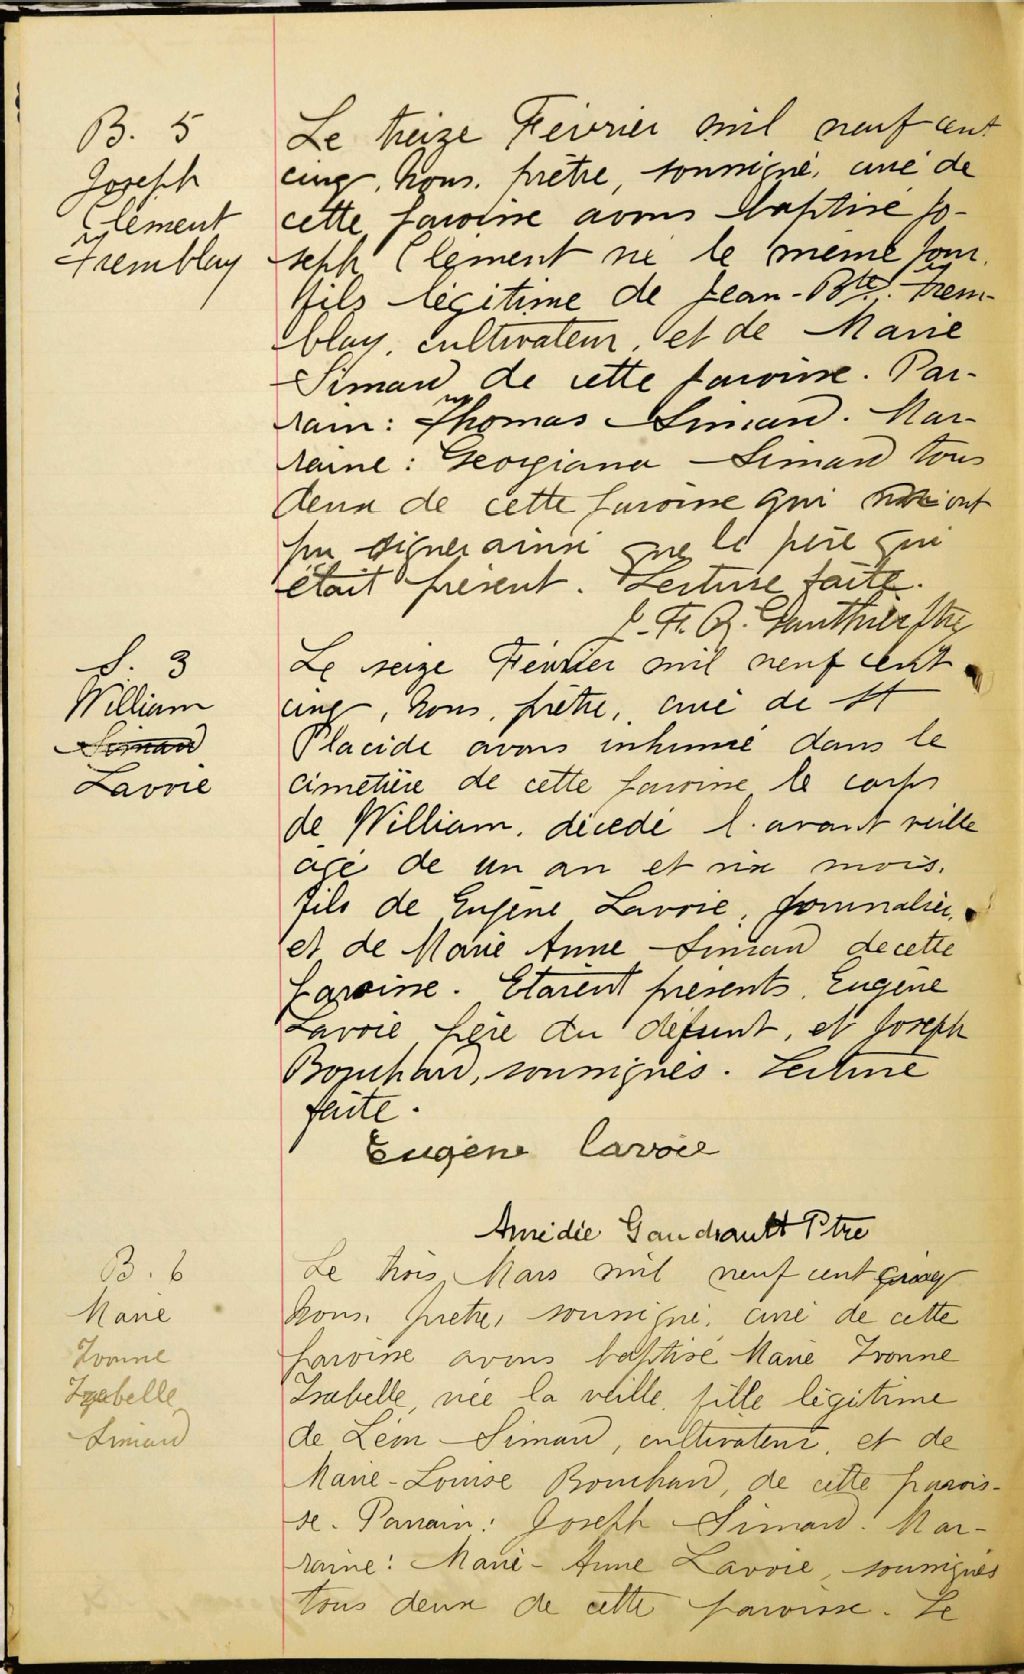 B. 5
Joseph
Clément
Tremblay
Le treize Février mil neuf cent
cinq, nous, prêtre, soussigné, curé de
cette paroisse avons baptisé Jo-
seph Clément né le même jour,
fils légitime de Jean-Bte. Trem-
blay, cultivateur, et de Marie
Simard de cette paroisse. Par-
rain: Thomas Simard. Mar-
raine: Georgiana Simard tous
deux de cette paroisse qui ont
pu signer ainsi que le père qui
était présent. Lecture faite.
Gauthier Ptre
S. 3
William
Simard
Lavoie
Le seize Février mil neuf cent
cinq, nous, prêtre, curé de St
Placide avons inhumé dans le
cimetière de cette paroisse le corps
de William, décédé l'avant veille
âgé de un an et six mois,
fils de Eugène Lavoie, journalier,
et de Marie Anne Simard de cette
paroisse. Etaient présents, Eugène
Lavoie père du défunt, et Joseph
Bouchard, soussignés. Lecture
faite.
Eugène Lavoie
Amédie Gaudrault Ptre
B. 6
Marie
Yvonne
Izabelle
Simard
Le trois Mars mil neuf cent cinq
nous, prêtre, soussigné, curé de cette
paroisse avons baptisé Marie Yvonne
Isabelle, née la veille, fille légitime
de Léon Simard, cultivateur, et de
Marie-Louise Bouchard, de cette parois-
se. Parrain: Joseph Simard. Mar-
raine: Marie-Anne Lavoie, soussignés
tous deux de cette paroisse. Le